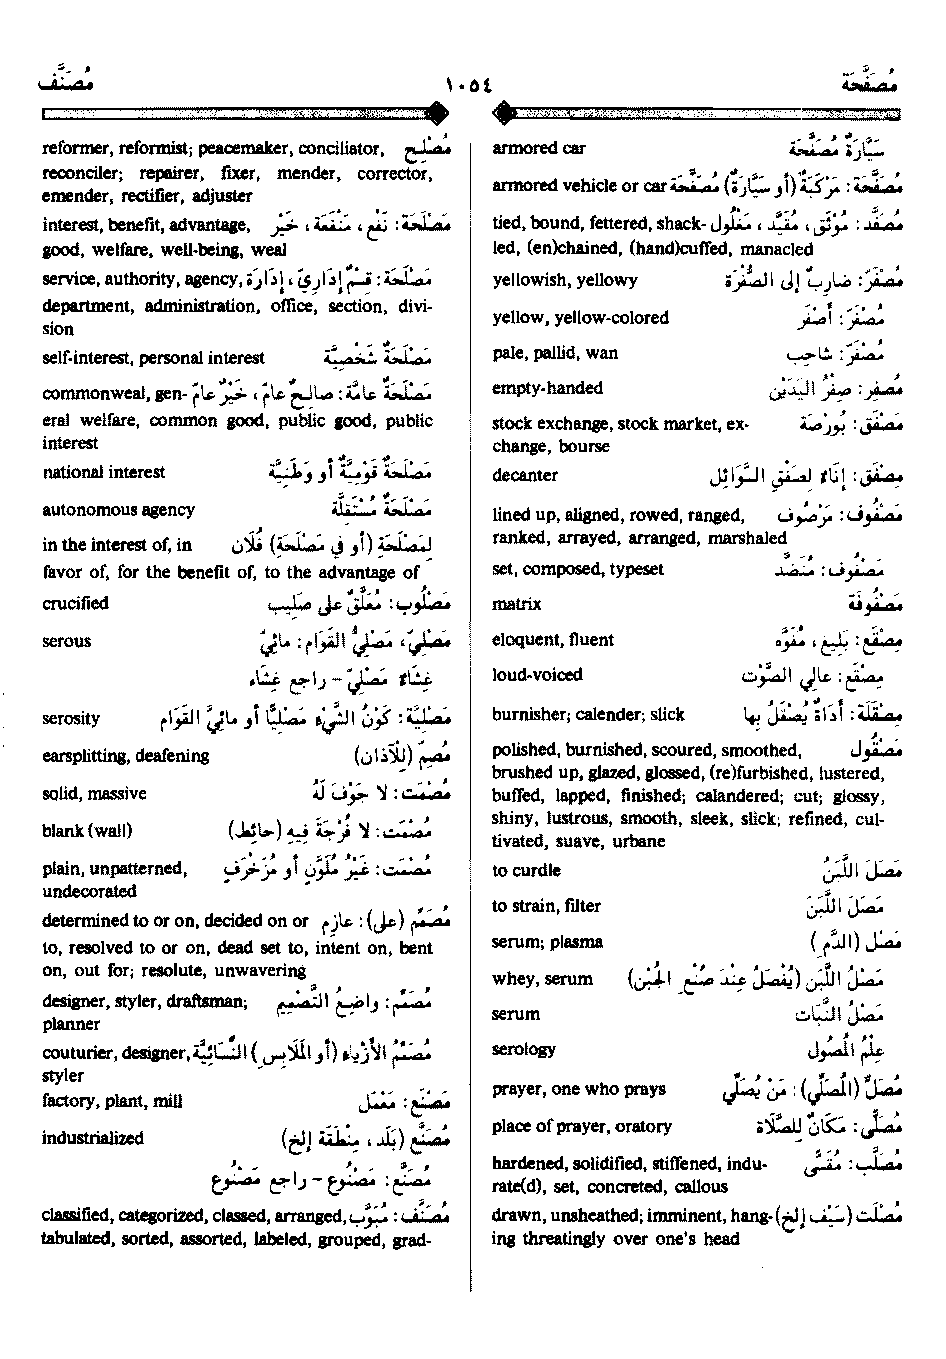 مُصَفَّحَة
١٠٥٤
مُصَنَّف
armored car سَيَّارَةٌ مُصَفَّحَة
armored vehicle or car مُصَفَّحَة: مَرْكَبَةٌ (أو سَيَّارَةٌ) مُصَفَّحَة
tied, bound, fettered, shack- مُصَفَّد: مُوثَق، مُقَيَّد، مَغْلُول
led, (en)chained, (hand)cuffed, manacled
yellowish, yellowy مُصْفَرّ: ضارِبٌ إلى الصُّفْرَة
yellow, yellow-colored مُصْفَرّ: أصْفَر
pale, pallid, wan مُصْفَرّ: شاحِب
empty-handed مُصْفِر: صِفْرُ اليَدَيْن
stock exchange, stock market, ex- مَصْفَق: بُورْصَة
change, bourse
decanter مِصْفَق: إنَاءٌ لِصَفْقِ السَّوَائِل
lined up, aligned, rowed, ranged, مَصْفُوف: مَرْصُوف
ranked, arrayed, arranged, marshaled
set, composed, typeset مَصْفُوف: مُنَضَّد
matrix مَصْفُوفَة
eloquent, fluent مِصْقَع: بَلِيغ، مُفَوَّه
loud-voiced مِصْقَع: عالِي الصَّوْت
burnisher; calender; slick مِصْقَلَة: أدَاةٌ يُصْقَلُ بِها
polished, burnished, scoured, smoothed, مَصْقُول
brushed up, glazed, glossed, (re)furbished, lustered,
buffed, lapped, finished; calandered; cut; glossy,
shiny, lustrous, smooth, sleek, slick; refined, cul-
tivated, suave, urbane
to curdle مَصَلَ اللَّبَنُ
to strain, filter مَصَلَ اللَّبَنَ
serum; plasma مَصْل (الدَّم)
whey, serum مَصْلُ اللَّبَن (يُفْصَلُ عِنْدَ صُنْعِ الجُبْن)
serum مَصْلُ النَّبَات
serology عِلْمُ المُصُول
prayer, one who prays مُصَلٍّ (المُصَلِّي): مَنْ يُصَلِّي
place of prayer, oratory مُصَلَّى: مَكَانٌ لِلصَّلاة
hardened, solidified, stiffened, indu- مُصَلَّب: مُقَسَّى
rate(d), set, concreted, callous
drawn, unsheathed; imminent, hang- مُصْلَت (سَيْف إلخ)
ing threatingly over one's head
reformer, reformist; peacemaker, conciliator, مُصْلِح
reconciler; repairer, fixer, mender, corrector,
emender, rectifier, adjuster
interest, benefit, advantage, مَصْلَحَة: نَفْع، مَنْفَعَة، خَيْر
good, welfare, well-being, weal
service, authority, agency, مَصْلَحَة: قِسْمٌ إدَارِيّ، إدَارَة
department, administration, office, section, divi-
sion
self-interest, personal interest مَصْلَحَةٌ شَخْصِيَّة
commonweal, gen- مَصْلَحَةٌ عامَّة: صالِحٌ عامّ، خَيْرٌ عامّ
eral welfare, common good, public good, public
interest
national interest مَصْلَحَةٌ قَوْمِيَّةٌ أو وَطَنِيَّة
autonomous agency مَصْلَحَةٌ مُسْتَقِلَّة
in the interest of, in لِمَصْلَحَةِ (أو في مَصْلَحَةِ) فُلان
favor of, for the benefit of, to the advantage of
crucified مَصْلُوب: مُعَلَّقٌ على صَلِيب
serous مَصْلِيّ، مَصْلِيُّ القَوَام: مائِيّ
غِشَاءٌ مَصْلِيّ - راجع غِشَاء
serosity مَصْلِيَّة: كَوْنُ الشَّيْءِ مَصْلِيًّا أو مائِيَّ القَوَام
earsplitting, deafening مُصِمّ (لِلآذان)
solid, massive مُصْمَت: لا جَوْفَ لَهُ
blank (wall) مُصْمَت: لا فُرْجَةَ فِيهِ (حائِط)
plain, unpatterned, مُصْمَت: غَيْرُ مُلَوَّنٍ أو مُزَخْرَفٍ
undecorated
determined to or on, decided on or مُصَمِّم (على): عازِم
to, resolved to or on, dead set to, intent on, bent
on, out for; resolute, unwavering
designer, styler, draftsman; مُصَمِّم: واضِعُ التَّصْمِيم
planner
couturier, designer, مُصَمِّمُ الأزْيَاء (أو المَلابِس) النِّسَائِيَّة
styler
factory, plant, mill مَصْنَع: مَعْمَل
industrialized مُصَنَّع (بَلَد، مِنْطَقَة إلخ)
مُصَنَّع: مَصْنُوع - راجع مَصْنُوع
classified, categorized, classed, arranged, مُصَنَّف: مُبَوَّب
tabulated, sorted, assorted, labeled, grouped, grad-